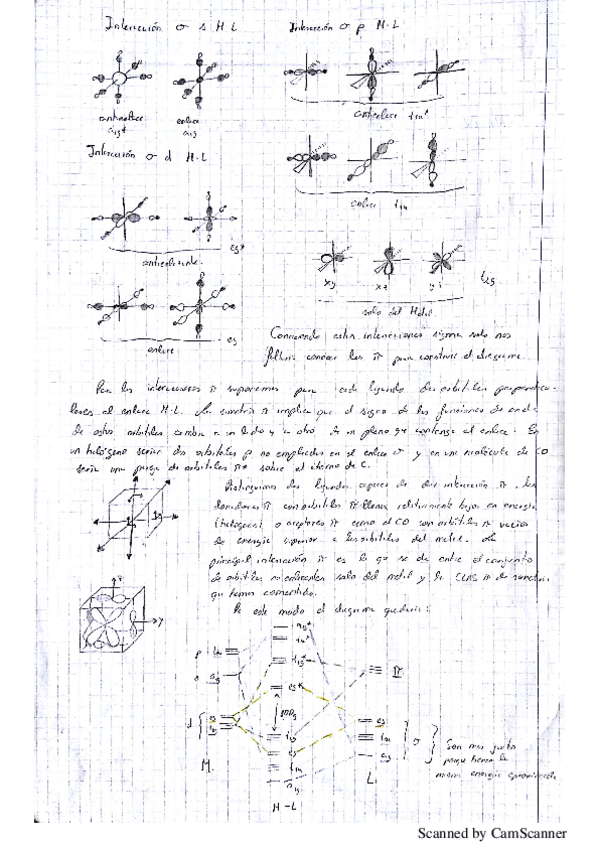 Interacción σ s M-L
Interacción σ p M-L
antienlace
a1g*
enlace
a1g
antienlace t1u*
Interacción σ d M-L
enlace t1u
eg*
antienlazante
xy
xz
yz
t2g
solo del Metal
eg
enlace
Conociendo estas interacciones sigma solo nos
conocer las π para construir el diagrama.
Para las interacciones π suponemos para cada ligando dos orbitales perpendicu-
lares al enlace M-L. La simetría π implica que el signo de las funciones de onda
de estos orbitales cambia a un lado y a otro de un plano que contenga el enlace. En
un halógeno serían dos orbitales p no empleados en el enlace σ y en una molécula de CO
sería una pareja de orbitales π* sobre el átomo de C.
Distinguimos dos ligandos capaces de dar interacción π, los
dadores π con orbitales π llenos relativamente bajos en energía
(halógenos) o aceptores π como el CO con orbitales π vacíos
de energía superior a los orbitales del metal. La
principal interacción π es la que se da entre el conjunto
de orbitales no enlazantes solo del metal y la CLAS π de simetría
que hemos comentado.
De este modo el diagrama quedaría:
a1g*
t1u*
p t1u
t2g*
s a1g
π
eg*
10Dq
d
eg
t2g
eg
t1u
σ
eg
t1u
a1g
a1g
M
L
M-L
Son mas juntos
porque tienen la
misma energía aproximada
Scanned by CamScanner